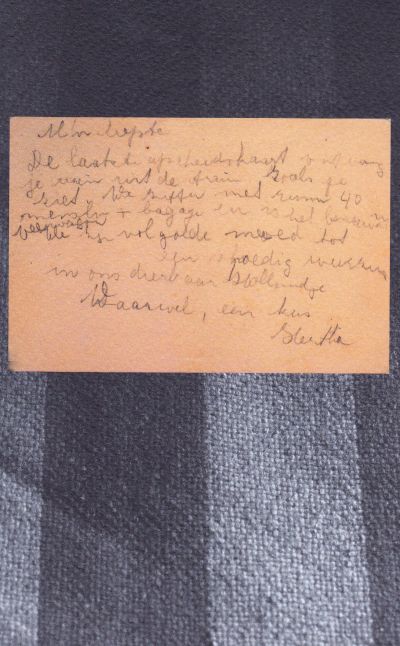 Mijn liefste
De laatste afscheidskaart ontvang
je van uit de trein Zoals je
ziet. We zitten met ruim 40
menschen + bagage in 1 het
veewagen
We zijn vol goede moed tot
een spoedig weerzien
in ons dierbaar Hollandje
Vaarwel, een kus